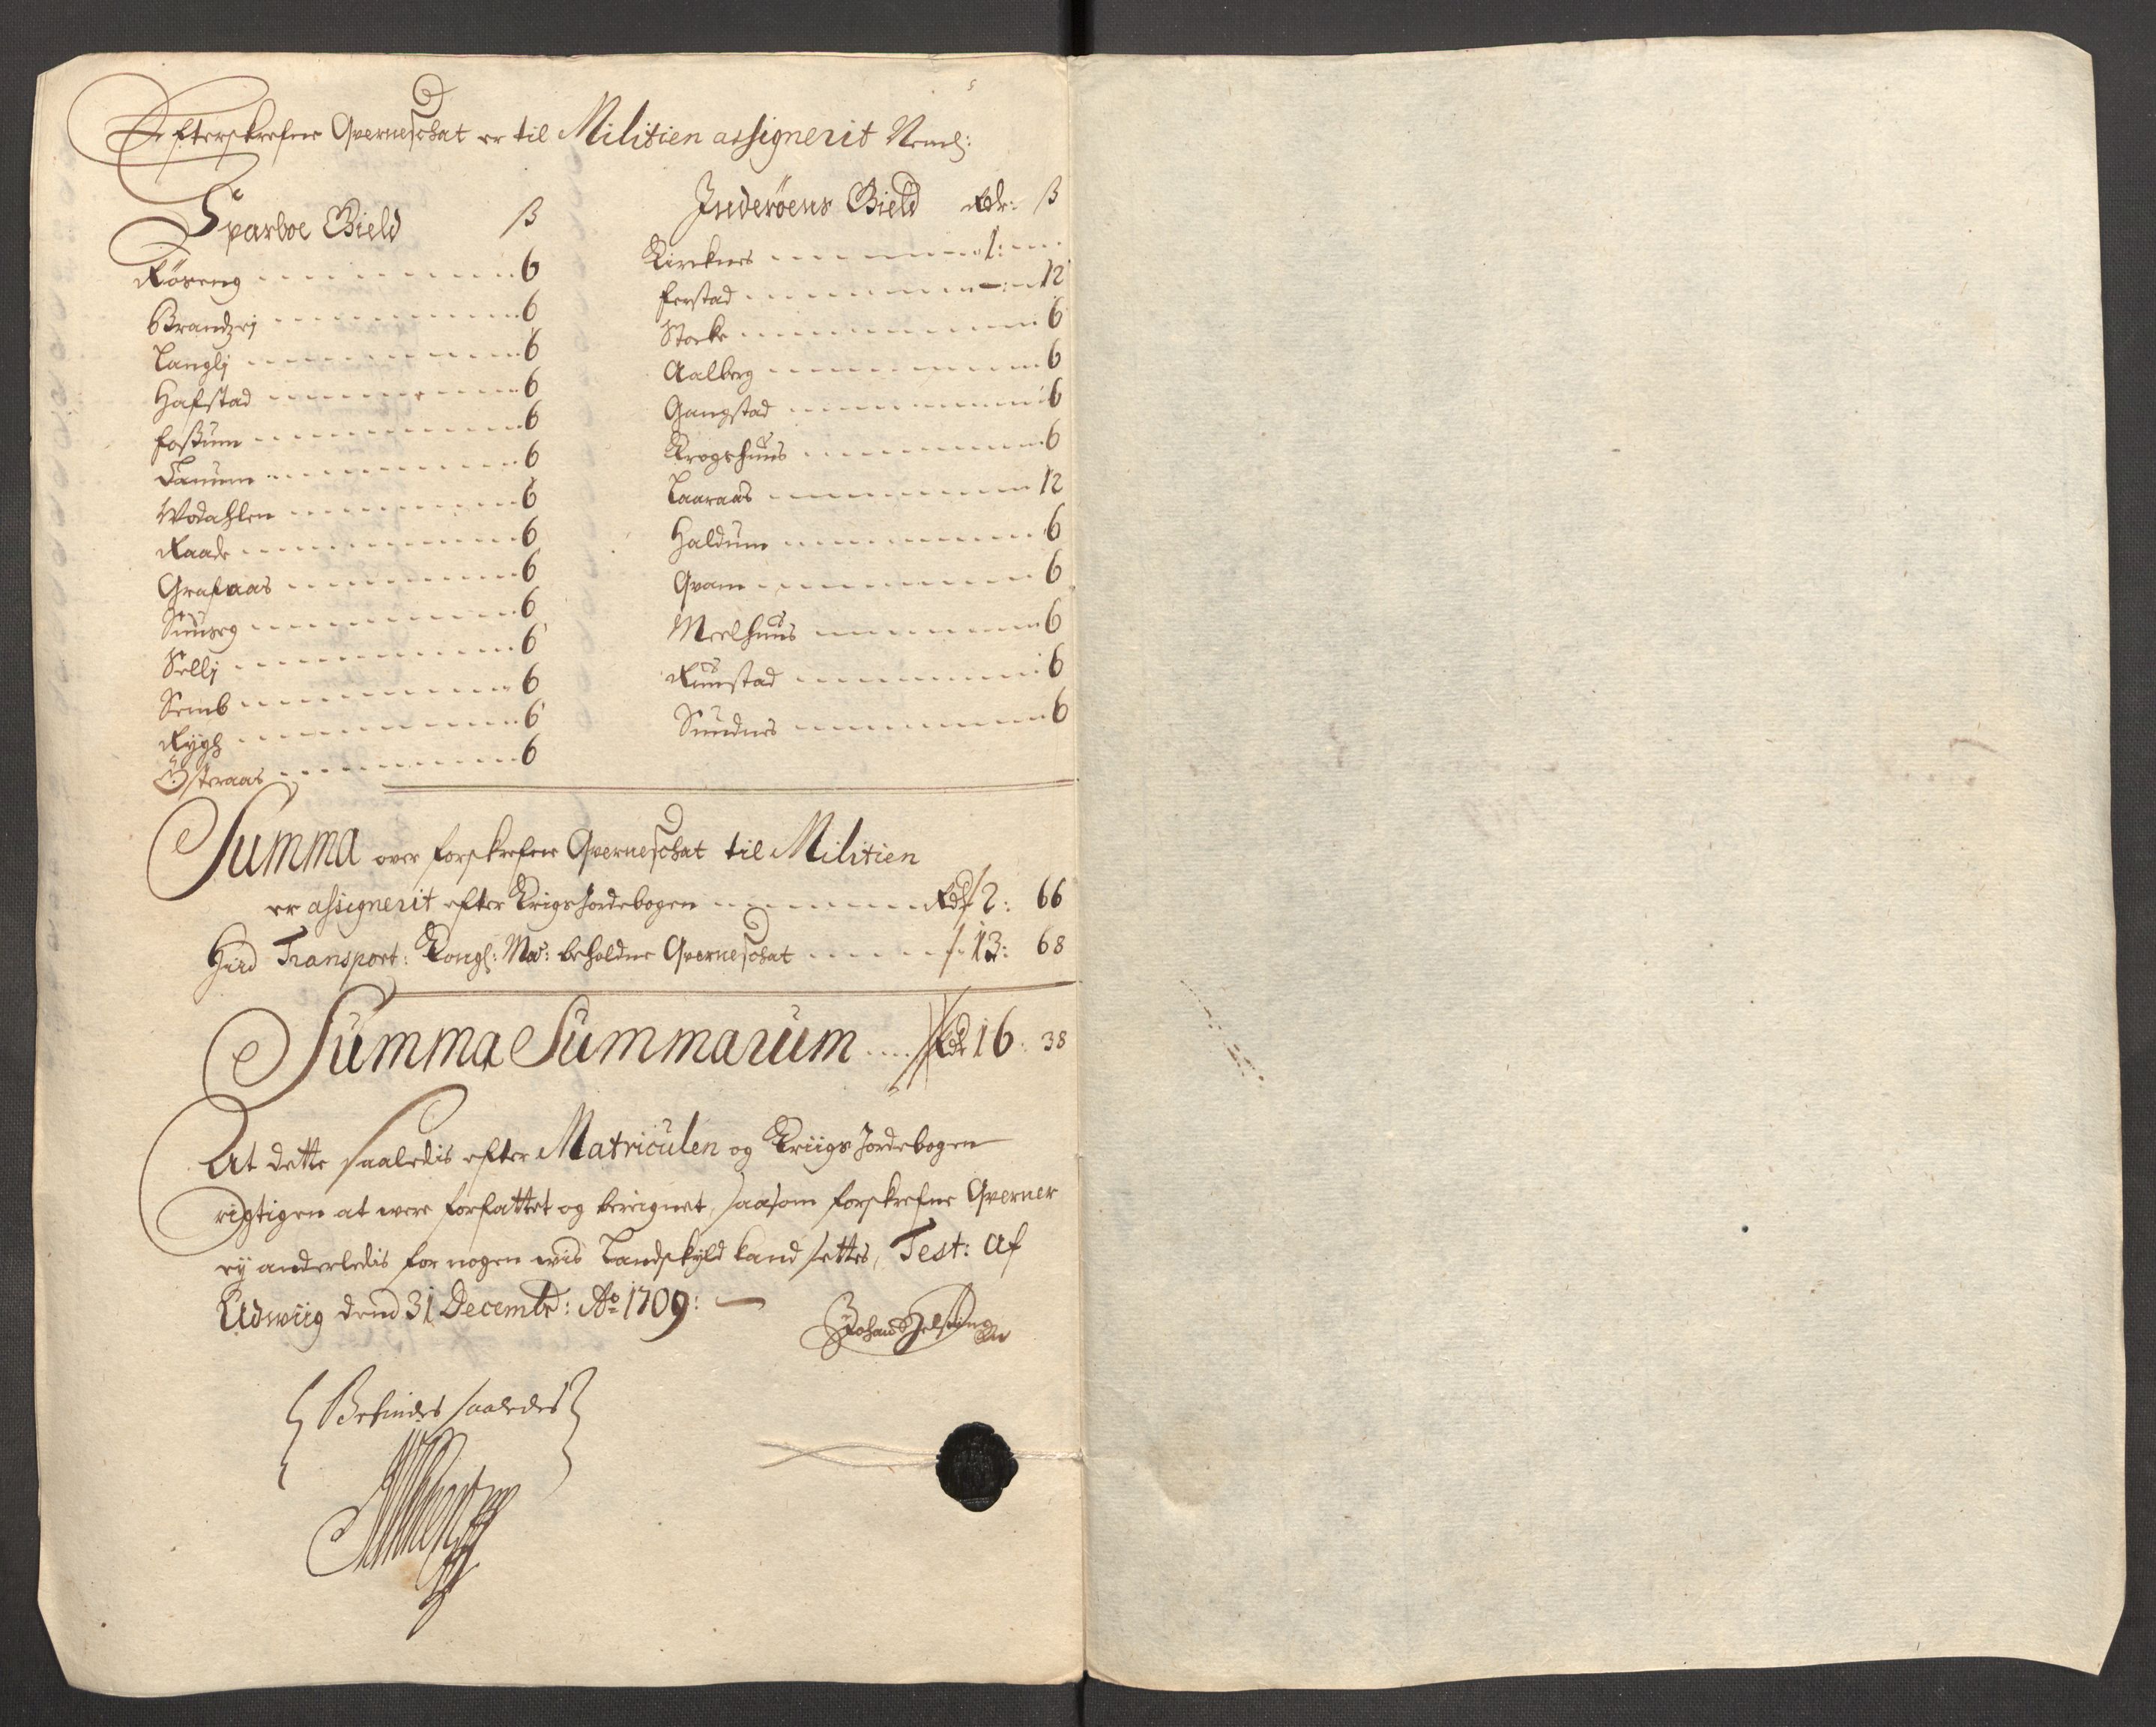 Efterskrefne Qverneschat er til Militien assignerit Neml:
Sparboe Gield ß
Røseng 6
Brandzej 6
Langlj 6
Hafstad 6
Foßum 6
Danum 6
Wodahlen 6
Raade 6
Grafaas 6
6
Sellj 6
Semb 6
Rygh 6
Østeraas 6
Inderöens Gield Rdr: ß
Kircknes 1:
Ferstad -: 12
Storke 6
Aalberg 6
Gangstad 6
Krogshuus 6
Laaraas 12
Haldum 6
Qvam 6
Meelhuus 6
Ruustad 6
Sundnes 6
Summa over forskrefne Qverneschat til Militien
er assignerit efter Krigs Jordebogen Rdr 2: 66
Hjid Transport: Kongl: Ma: beholdne Qverneschat 13: 68
Summa Summarum Rdr 16: 38
At dette saaledis efter Matriculen og Kriigs Jordebogen
rigtigen at were forfattet og bereignet, saasom forskrefne Qverner
ej anderledis for nogen wis Landskyld kand settes, Test: Af
Udwiig dend 31 Decembr: Ao 1709:
Befindes saaledes